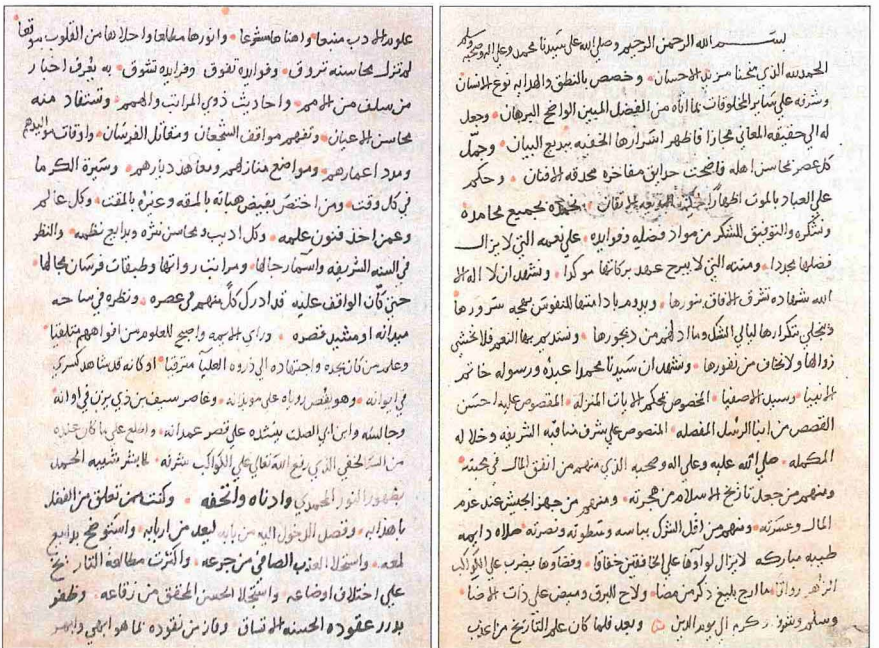 بسم الله الرحمن الرحيم وصلى الله على سيدنا محمد وعلى اله وصحبه وسلم
الحمد لله الذي منحنا مزيد الاحسان وخصص بالنطق والهدايه نوع الانسان
وشرفه على ساير المخلوقات بما اتاه من الفضل المبين الواضح البرهان وجعل
له الى حقيقه المعاني مجازا فاظهر اسرارها الخفيه ببديع البيان وجمل
كل عصر بمحاسن اهله فاضحت حدايق مفاخره محدقه الافنان وحكم
على العباد بالموت اظهارا الاتقان نحمده بجميع محامده
ونشكره والتوفيق للشكر من مواد فضله وفوايده على نعمه التي لا يزال
فضلها مجددا ومننه التي لا يبرح عهد بركاتها موكدا ونشهد ان لا اله الا
الله شهاده تشرق الافاق بنورها ويدوم بادامتها للنفوس بهجه سرورها
وينجلي بتكرارها ليالي الشك وما ادلهم من ديجورها ونستديم بها النعم فلا نخشى
زوالها ولا نخاف من نفورها ونشهد ان سيدنا محمدا عبده ورسوله خاتم
الانبيا وسيد الاصفيا المخصوص بمحكم الايات المنزله المقصوص عليه احسن
القصص من انبا الرسل المفصله المنصوص على شرف مناقبه الشريفه وخلاله
المكمله صلى الله عليه وعلى اله وصحبه الذي منهم من انفق المال في محبته
ومنهم من جعل تاريخ الاسلام من هجرته ومنهم من جهز الجيش عند عدم
المال وعسرته ومنهم من اقل الشرك بباسه وسطوته ونصرته صلاه دايمه
طيبه مباركه لا يزال لواوها على الخافقين خفاقا وفضاوها يضرب على الكواكب
الزهر رواقا ما ارج بليغ ذكر من مضا ولاح للبرق وميض على ذات الاضا
وسلم وشرف وكرم الى يوم الدين وبعد فلما كان علم التاريخ من اعذب
علوم الادب منبعا واهناها مشرعا وانورها مطالعا واحلاها من القلوب موقعا
لم تزل محاسنه تروق وفوايده تفوق وفرايده تشوق به يعرف اخبار
من سلف من الامم واحاديث ذوي المراتب والهمم وتستفاد منه
محاسن الاعيان وتفهم مواقف الشجعان ومقاتل الفرسان واوقات مواليدهم
ومدد اعمارهم ومواضع منازلهم ومعاهد ديارهم وسيرة الكرما
في كل وقت ومن اختص بفيض هباته بالمقه وغيره بالمقت وكل عالم
وعمن اخذ فنون علمه وكل اديب ومحاسن نثره وبدايع نظمه والنظر
في السنه الشريفه واسما رجالها ومراتب رواتها وطبقات فرسان مجالها
حتى كان الواقف عليه قد ادرك كلا منهم في عصره ونظره في ساحه
ميدانه او مشيد قصره وراي الايمه واصبح للعلوم من افواههم متلقنا
وعلم من كان بجده واجتهاده الى ذروه العليا مترقيا او كانه قد شاهد كسرى
في ايوانه وهو يقص روياه على موبذانه وعاصر سيف بن ذي يزن في اوانه
وجالسه وابن ابي الصلت ينشده على قصر غمدانه واطلع على ما كان عنده
من السر الخفي الذي رفع الله تعالى على الكواكب شرفه لما بشر شيبه الحمد
بظهور النور المحمدي وادناه واتحفه وكنت ممن تعلق من الفضل
باهدابه وقصد الدخول اليه من بابه لبعد من اربابه واستوضح بدايع
لمعه واستحلا العذب الصافي من جرعه واكثرت مطالعة التاريخ
على اختلاف اوضاعه واستجلا الحسن المحقق من رقاعه وظفر
بدرر عقوده الحسنه الاتساق وفاز من نقوده بما هو ابهى وابهر